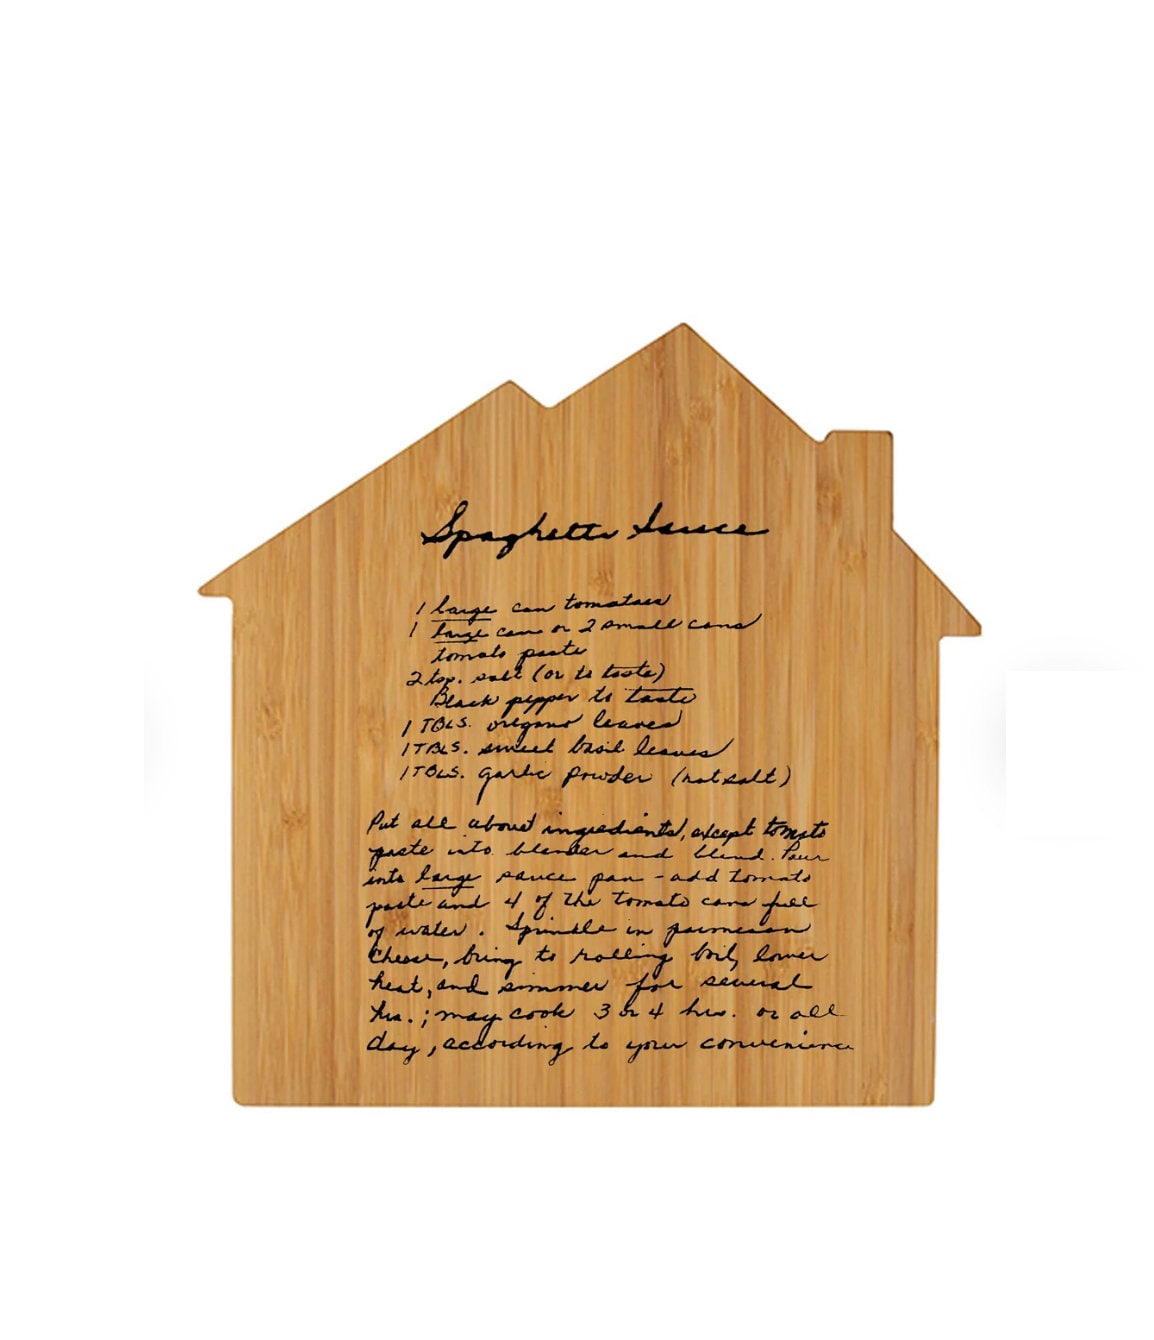 Spaghetti Sauce
1 large can tomatoes
1 large can or 2 small cans
tomato paste
2 tsp. salt (or to taste)
Black pepper to taste
1 TBLS. oregano leaves
1 TBLS. sweet basil leaves
1 TBLS. garlic powder (not salt)
Put all above ingredients, except tomato
paste into blender and blend. Pour
into large sauce pan - add tomato
paste and 4 of the tomato cans full
of water. Sprinkle in parmesan
cheese, bring to rolling boil, lower
heat, and simmer for several
hrs.; may cook 3 or 4 hrs. or all
day, according to your convenience